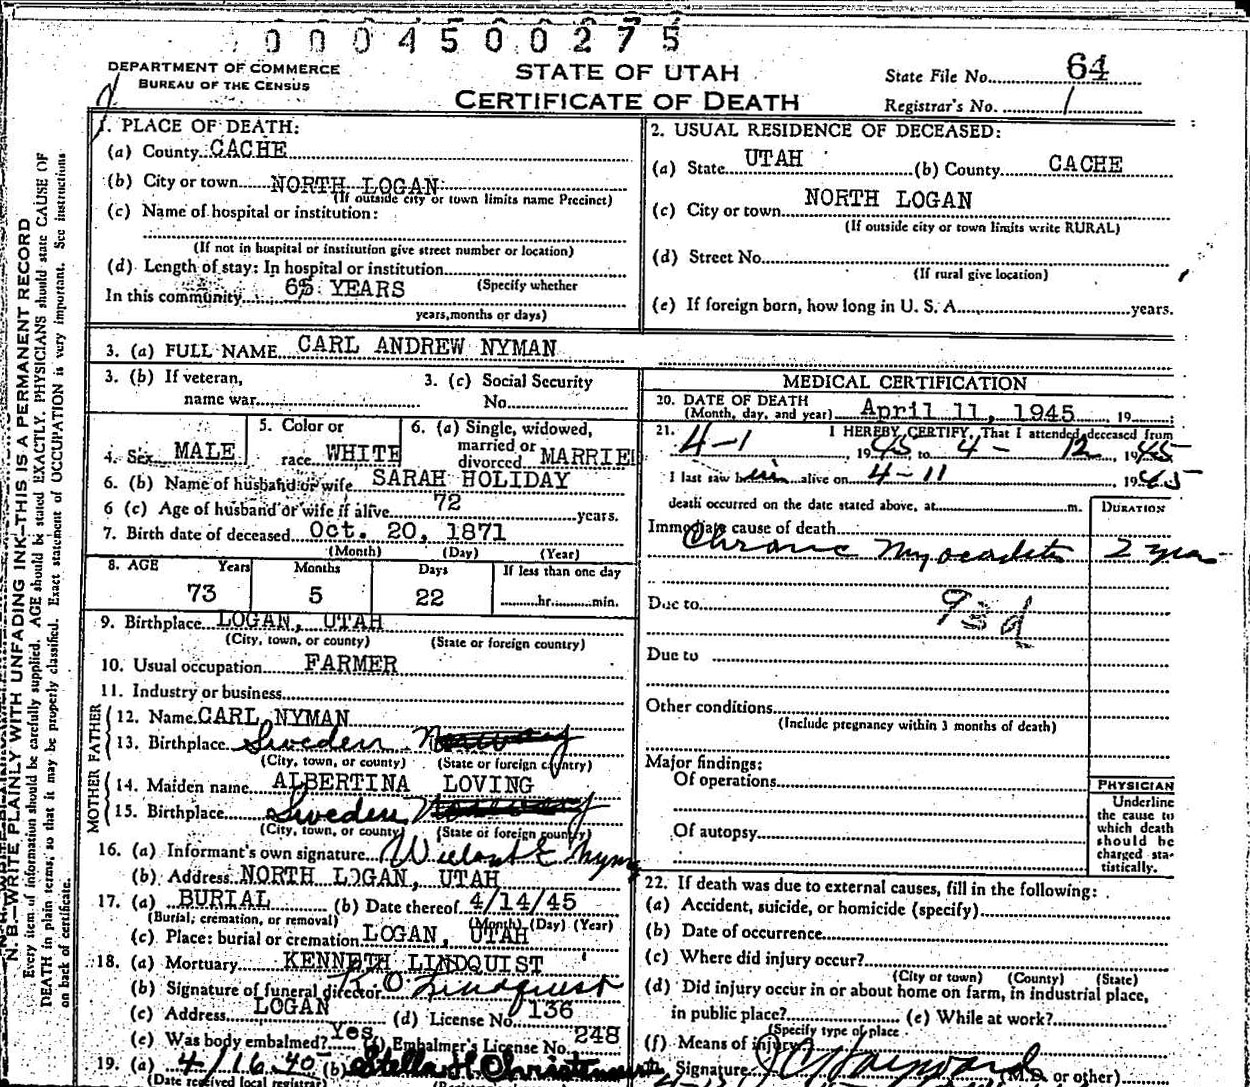 0004500275
DEPARTMENT OF COMMERCE
BUREAU OF THE CENSUS
STATE OF UTAH
CERTIFICATE OF DEATH
State File No. 64
Registrar's No. 1
1. PLACE OF DEATH:
(a) County CACHE
(b) City or town NORTH LOGAN
(If outside city or town limits name Precinct)
(c) Name of hospital or institution:
(If not in hospital or institution give street number or location)
(d) Length of stay: In hospital or institution
(Specify whether
In this community 65 YEARS
years, months or days)
2. USUAL RESIDENCE OF DECEASED:
(a) State UTAH (b) County CACHE
(c) City or town NORTH LOGAN
(If outside city or town limits write RURAL)
(d) Street No.
(If rural give location)
(e) If foreign born, how long in U. S. A. years.
3. (a) FULL NAME CARL ANDREW NYMAN
3. (b) If veteran,
name war
3. (c) Social Security
No.
4. Sex MALE
5. Color or
race WHITE
6. (a) Single, widowed,
married or
divorced MARRIED
6. (b) Name of husband or wife SARAH HOLIDAY
6 (c) Age of husband or wife if alive 72 years.
7. Birth date of deceased Oct. 20, 1871
(Month) (Day) (Year)
8. AGE Years Months Days If less than one day
73 5 22 hr. min.
9. Birthplace LOGAN, UTAH
(City, town, or county) (State or foreign country)
10. Usual occupation FARMER
11. Industry or business
FATHER
12. Name CARL NYMAN
13. Birthplace Sweden Norway
(City, town, or county) (State or foreign country)
MOTHER
14. Maiden name ALBERTINA LOVING
15. Birthplace Sweden Norway
(City, town, or county) (State or foreign country)
16. (a) Informant's own signature
(b) Address NORTH LOGAN, UTAH
17. (a) BURIAL (b) Date thereof 4/14/45
(Burial, cremation, or removal) (Month) (Day) (Year)
(c) Place: burial or cremation LOGAN, UTAH
18. (a) Mortuary KENNETH LINDQUIST
(b) Signature of funeral director K O Lindquist
(c) Address LOGAN (d) License No. 136
(e) Was body embalmed? Yes (f) Embalmer's License No. 248
19. (a) 4/16 (b) Stella H Christensen
(Date received local registrar)
MEDICAL CERTIFICATION
20. DATE OF DEATH
(Month, day, and year) April 11, 1945, 19
21. I HEREBY CERTIFY, That I attended deceased from
4-1, 1945 to 4-12, 1945
I last saw him alive on 4-11, 1945
death occurred on the date stated above, at m.
DURATION
Immediate cause of death
Chronic Myocarditis 2 years
Due to 93d
Due to
Other conditions
(Include pregnancy within 3 months of death)
Major findings:
Of operations
Of autopsy
PHYSICIAN
Underline
the cause to
which death
should be
charged sta-
tistically.
22. If death was due to external causes, fill in the following:
(a) Accident, suicide, or homicide (specify)
(b) Date of occurrence
(c) Where did injury occur?
(City or town) (County) (State)
(d) Did injury occur in or about home on farm, in industrial place,
in public place? (e) While at work?
(Specify type of place
(f) Means of injury
Signature J C Hayward (M.D. or other)
N. B.—WRITE PLAINLY WITH UNFADING INK—THIS IS A PERMANENT RECORD
Every item of information should be carefully supplied. AGE should be stated EXACTLY. PHYSICIANS should state CAUSE OF
DEATH in plain terms, so that it may be properly classified. Exact statement of OCCUPATION is very important. See instructions
on back of certificate.